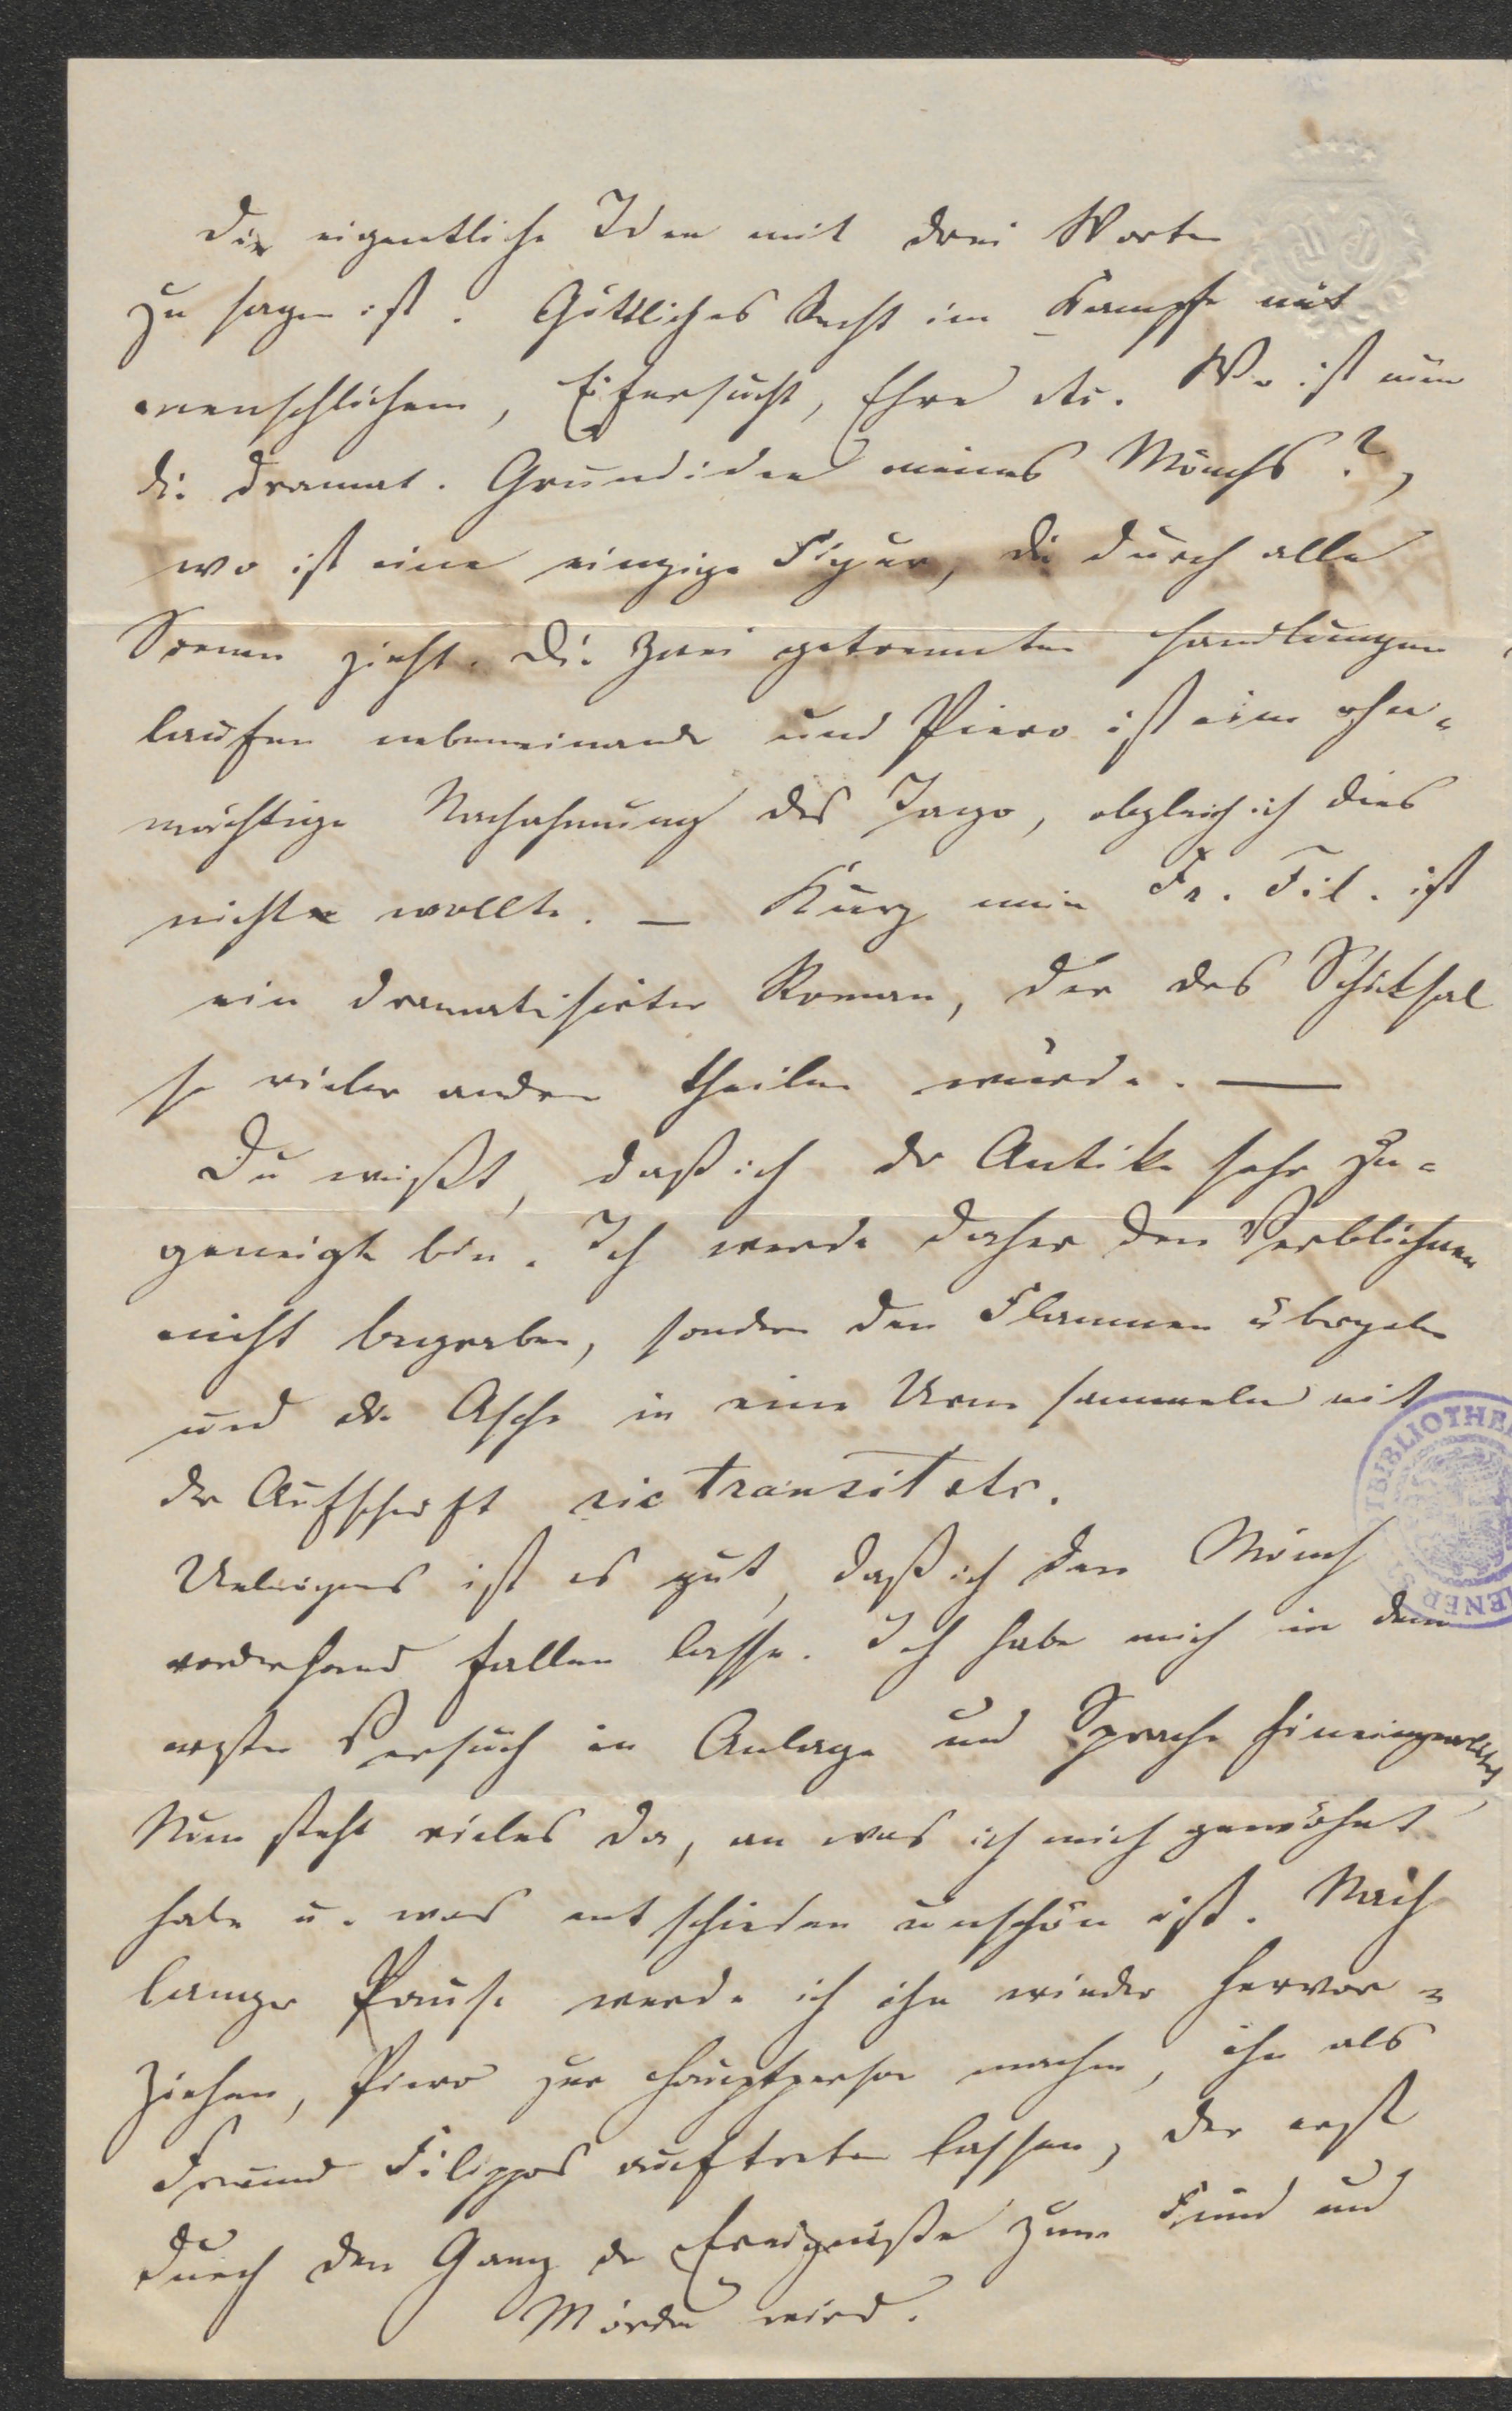 Die eigentliche Idee mit drei Worten
zu sagen ist. Göttliches Recht im Kampfe mit
menschlichem, Eifersucht, Ehre etc. Wo ist nun
die dramat. Grundidee meines Mönchs?,
wo ist eine einzige Figur, die durch alle
Scenen zieht. Die zwei getrennten Handlungen
laufen nebeneinander und Piero ist eine ohn-
mächtige Nachahmung des Jago, obgleich ich dies
nicht wollte. — Kurz mein Fr. Fil. ist
ein dramatisirter Roman, der das Schicksal
so vieler andern theilen würde. —
Du weißt, daß ich der Antike sehr zu-
geneigt bin. Ich werde daher den Verblichnen
nicht begraben, sondern den Flammen übergeben
und die Asche in eine Urne sammeln mit
der Aufschrift sic transit etc.
Uebrigens ist es gut, daß ich den Mönch
vorderhand fallen lasse. Ich habe mich in dem
ersten Versuch in Anlage und Sprache
Nun steht vieles da, an was ich mich gewöhnt
habe u. was entschieden unschön ist. Nach
langer Pause werde ich ihn wieder hervor-
ziehen, Piero zur Hauptperson machen, ihn als
Freund Filippos auftreten lassen, der erst
durch den Gang der Ereigniße zum Feind und
Mörder wird.